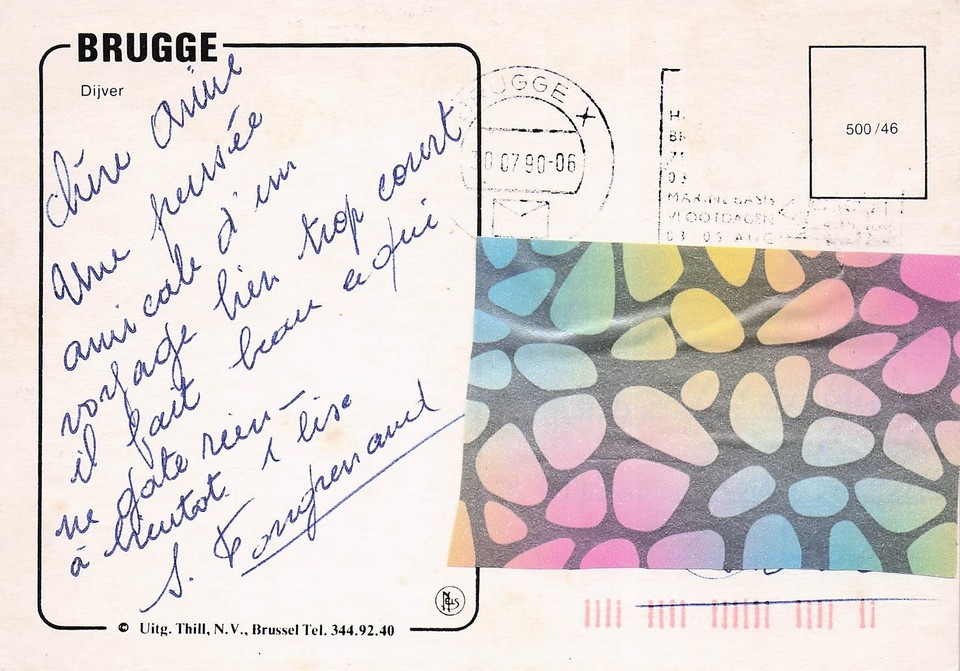 BRUGGE
Dijver
Chère Anine
une pensée
amicale d'un
voyage bien trop court
il fait beau ce qui
ne gate rien –
à bientot
S.
BRUGGE
07 90-06
500/46
MARINE BASIS
VLOOTDAGEN
03 05 AUG
© Uitg. Thill, N.V., Brussel Tel. 344.92.40